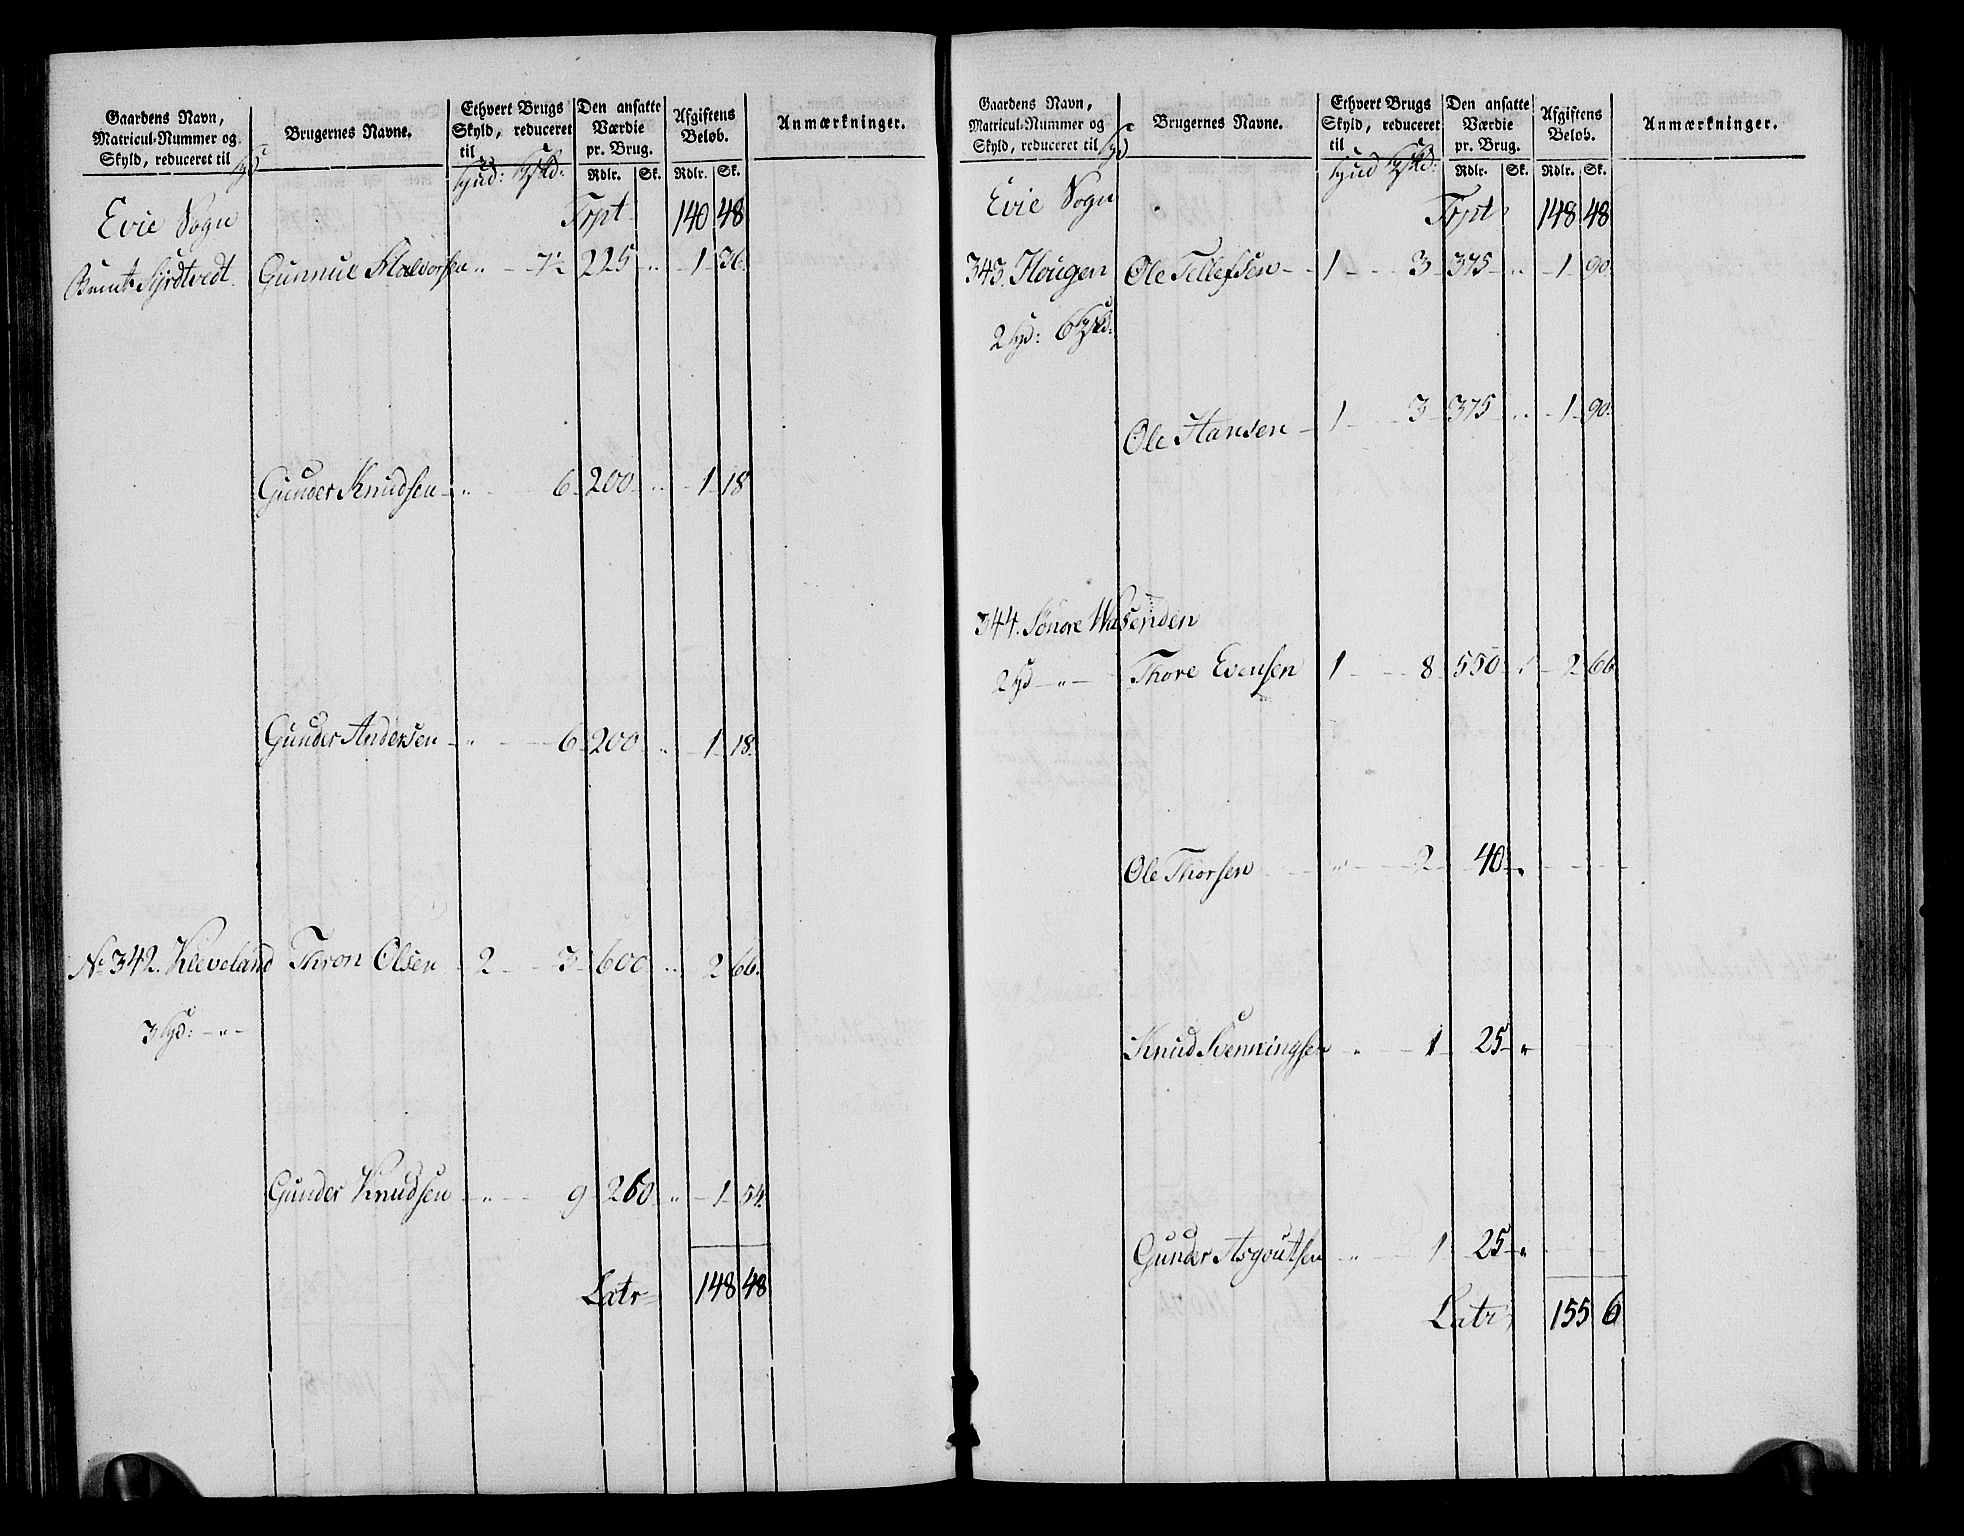 Gaardens Navn, Matricul-Nummer og Skyld, reduceret til
Brugernes Navne.
Ethvert Brugs Skyld, reduceret til
Den ansatte Værdie pr. Brug.
Afgiftens Beløb.
Anmærkninger.
Rdlr. Sk. Rdlr. Sk.
Evie Sogn Trpt 140 48
Gunnue Halvorsen „ 7½ 225 „ 1 36.
Gunder Knudsen „ 6 200 „ 1 18
Gunder Andersen „ 6 200 „ 1 18.
No 342. Kleveland Thron Olsen 2 3 600 „ 2 66.
3 „
Gunder Knudsen „ 9 260 „ 1 54.
Latr 148 48
Gaardens Navn, Matricul-Nummer og Skyld, reduceret til
Brugernes Navne.
Ethvert Brugs Skyld, reduceret til
Den ansatte Værdie pr. Brug.
Afgiftens Beløb.
Anmærkninger.
Rdlr. Sk. Rdlr. Sk.
Evie Sogn Trpt 148 48
343. Hougen Ole Tellefsen 1 3 375 „ 1 90.
2 6
Ole Hansen 1 3 375 „ 1 90.
344. Søndre Wasenden
2 „ Thore Evensen 1 8 550 „ 2 66
Ole Thorsen „ 2 40 „
Knud Svenningsen „ 1 25 „
Gunder Asgoutsen „ 1 25 „
Latr 155 6